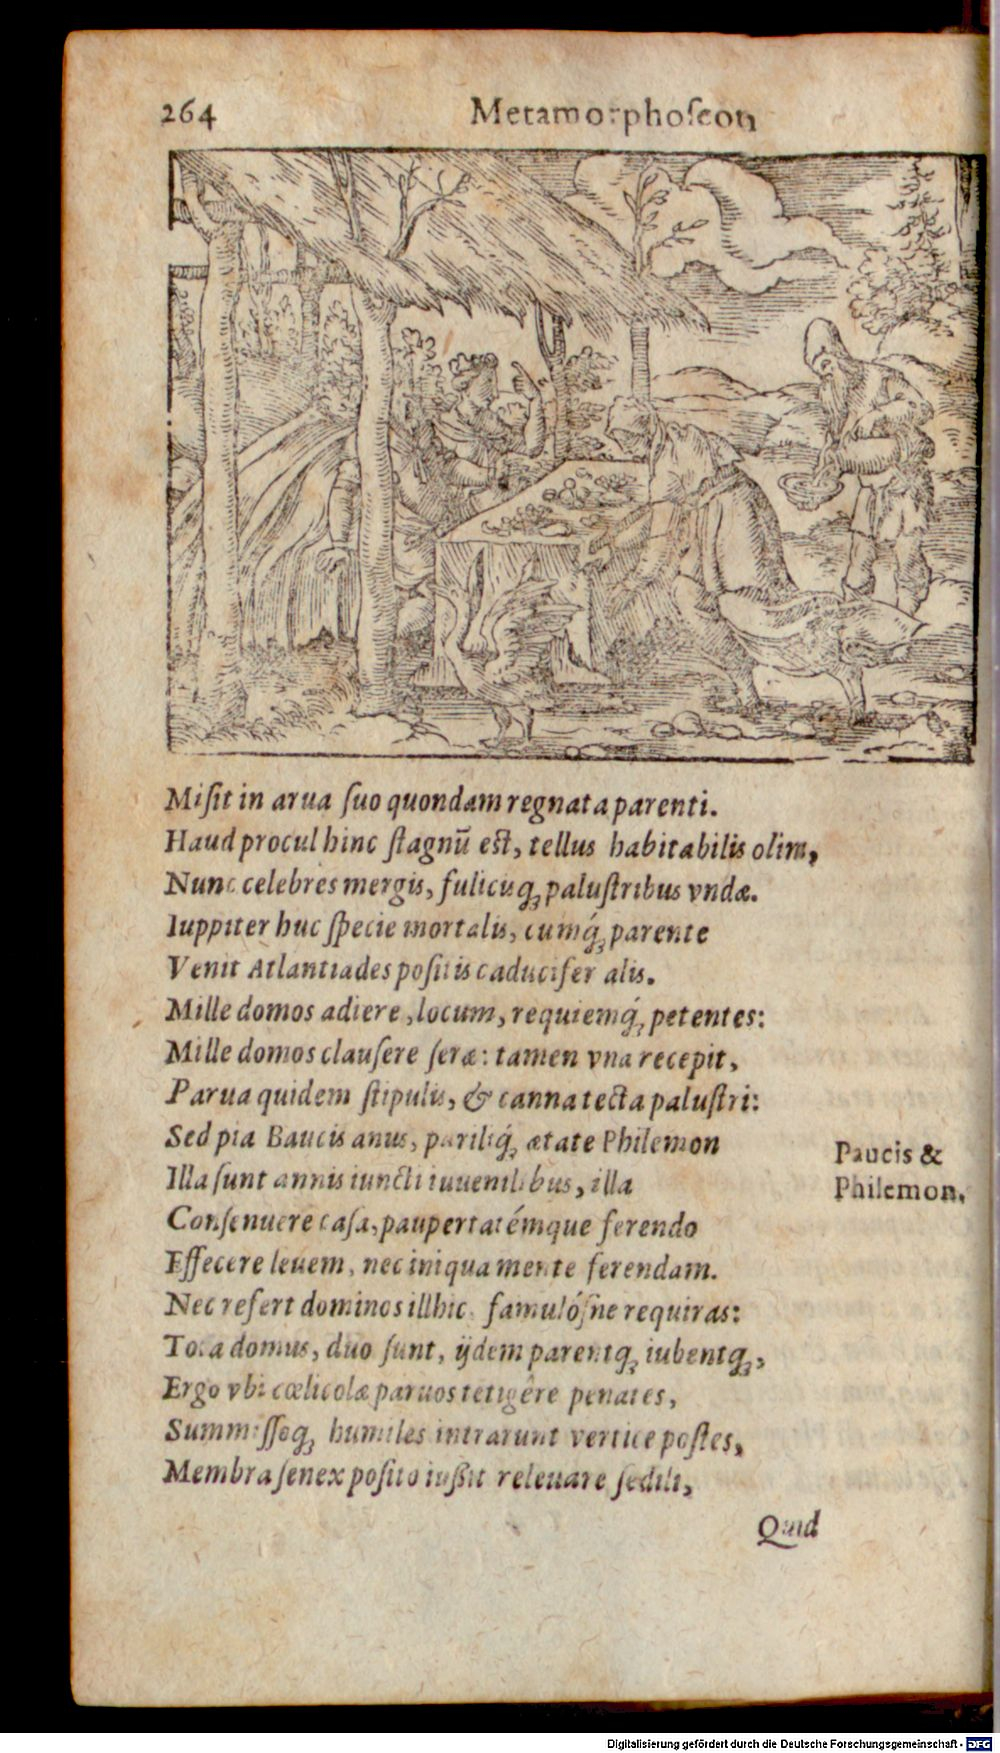 264 Metamorphoſeon
Miſit in arua ſuo quondam regnata parenti.
Haud procul hinc ſtagnū eſt, tellus habitabilis olim,
Nunc celebres mergis, fulicisq́ꝫ paluſtribus vndæ.
Iuppiter huc ſpecie mortalis, cumq́ꝫ parente
Venit Atlantiades poſitis caducifer alis.
Mille domos adiere, locum, requiemq́ꝫ petentes:
Mille domos clauſere ſeræ: tamen vna recepit,
Parua quidem ſtipulis, & canna tecta paluſtri:
Sed pia Baucis anus, pariliq́ꝫ ætate Philemon
Paucis &
Philemon.
Illa ſunt annis iuncti iuuenilibus, illa
Conſenuere caſa, paupertatémque ferendo
Effecere leuem, nec iniqua mente ferendam.
Nec refert dominos illhic famulóſne requiras:
Tota domus, duo ſunt, ijdem parentqꝫ iubentqꝫ,
Ergo vbi cœlicolæ paruos tetigêre penates,
Summiſſoqꝫ humiles intrarunt vertice poſtes,
Membra ſenex poſito iuſſit releuare ſedili,
Quid
Digitalisierung gefördert durch die Deutsche Forschungsgemeinschaft - DFG